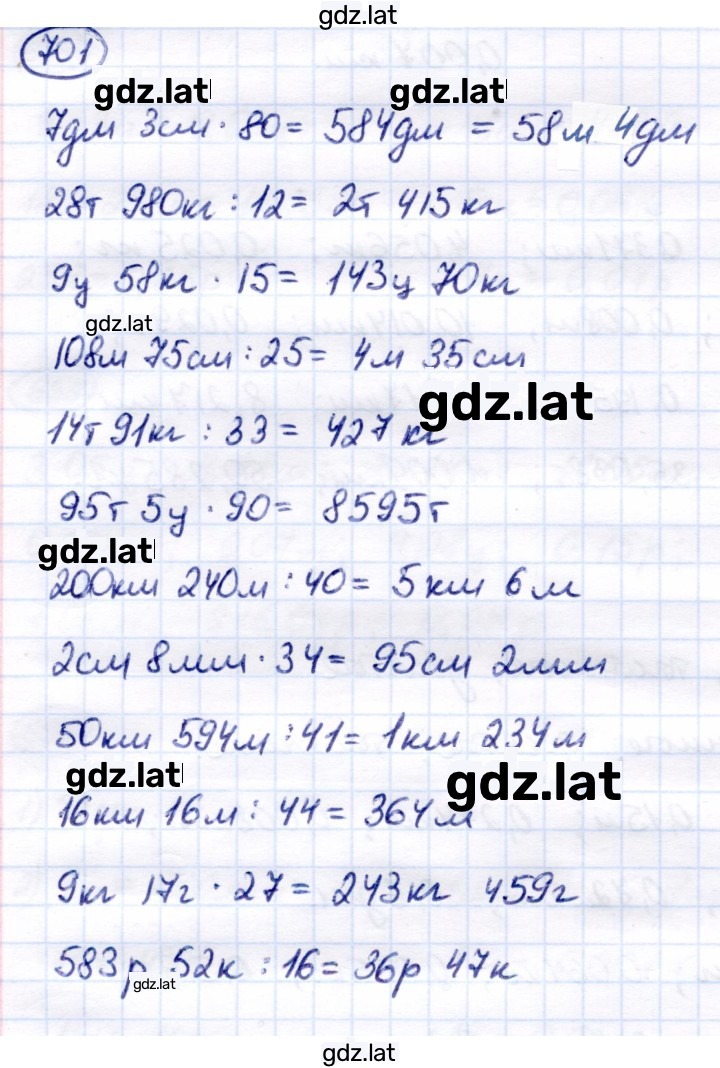 gdz.lat
701
gdz.lat gdz.lat
7дм 3см · 80 = 584дм = 58м 4дм
28т 980кг : 12 = 2т 415кг
9ц 58кг · 15 = 143ц 70кг
gdz.lat
108м 75см : 25 = 4м 35см
gdz.lat
14т 91кг : 33 = 427 кг
95т 5ц · 90 = 8595т
gdz.lat
200км 240м : 40 = 5км 6м
2см 8мм · 34 = 95см 2мм
50км 594м : 41 = 1км 234м
gdz.lat gdz.lat
16км 16м : 44 = 364м
9кг 17г · 27 = 243кг 459г
583р 52к : 16 = 36р 47к
gdz.lat
gdz.lat